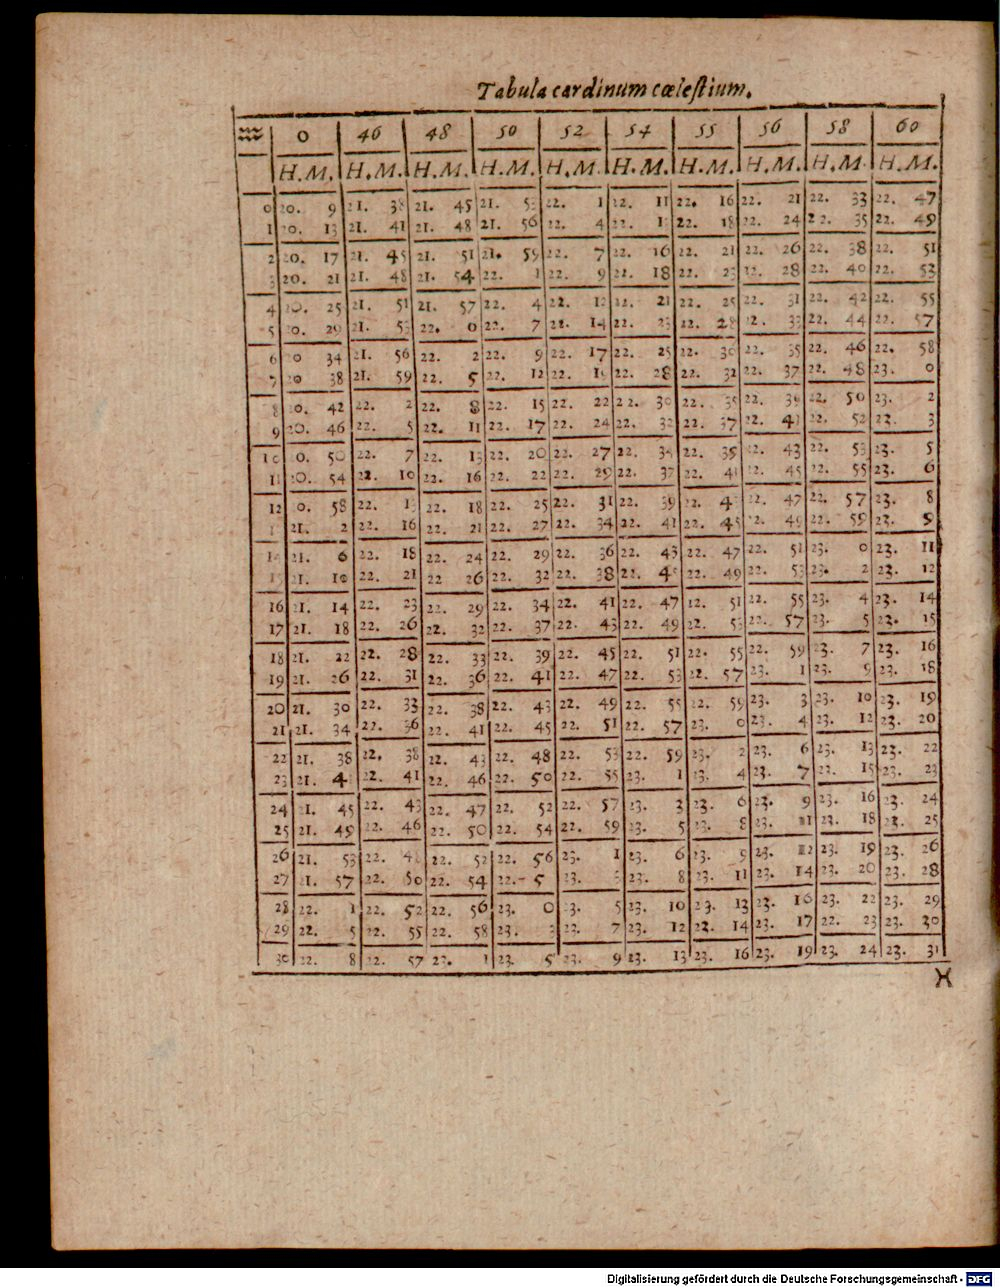 Tabula cardinum cœlestium.
♒ 0 46 48 50 52 54 55 56 58 60
H.M. H.M. H.M. H.M. H.M. H.M. H.M. H.M. H.M. H.M.
0 20. 9 21. 38 21. 45 21. 53 22. 1 22. 11 22. 16 22. 21 22. 33 22. 47
1 20. 13 21. 41 21. 48 21. 56 22. 4 22. 22. 18 22. 24 22. 35 22. 49
2 20. 17 21. 45 21. 51 21. 59 22. 7 22. 16 22. 21 22. 26 22. 38 22. 51
3 20. 21 21. 48 21. 54 22. 1 22. 9 22. 18 22. 23 22. 28 22. 40 22. 53
4 20. 25 21. 51 21. 57 22. 4 22. 12 22. 21 22. 25 22. 31 22. 42 22. 55
5 20. 29 21. 53 22. 0 22. 7 22. 14 22. 23 22. 28 22. 33 22. 44 22. 57
6 20 34 21. 56 22. 2 22. 9 22. 17 22. 25 22. 30 22. 35 22. 46 22. 58
7 20 38 21. 59 22. 5 22. 12 22. 19 22. 28 22. 32 22. 37 22. 48 23. 0
8 20. 42 22. 2 22. 8 22. 15 22. 22 22. 30 22. 35 22. 39 22. 50 23. 2
9 20. 46 22. 5 22. 11 22. 17 22. 24 22. 32 22. 37 22. 41 22. 52 23. 3
10 20. 50 22. 7 22. 13 22. 20 22. 27 22. 34 22. 39 22. 43 22. 53 23. 5
11 20. 54 22. 10 22. 16 22. 22 22. 29 22. 37 22. 41 22. 45 22. 55 23. 6
12 20. 58 22. 13 22. 18 22. 25 22. 31 22. 39 22. 22. 47 22. 57 23. 8
21. 2 22. 16 22. 21 22. 27 22. 34 22. 41 22. 45 22. 49 22. 59 23. 9
14 21. 6 22. 18 22. 24 22. 29 22. 36 22. 43 22. 47 22. 51 23. 0 23. 11
15 21. 10 22. 21 22 26 22. 32 22. 38 22. 22. 49 22. 53 23. 2 23. 12
16 21. 14 22. 23 22. 29 22. 34 22. 41 22. 47 22. 51 22. 55 23. 4 23. 14
17 21. 18 22. 26 22. 32 22. 37 22. 43 22. 49 22. 53 22. 57 23. 5 23. 15
18 21. 22 22. 28 22. 33 22. 39 22. 45 22. 51 22. 55 22. 59 23. 7 23. 16
19 21. 26 22. 31 22. 36 22. 41 22. 47 22. 53 22. 57 23. 1 23. 9 23. 18
20 21. 30 22. 33 22. 38 22. 43 22. 49 22. 55 22. 59 23. 3 23. 10 23. 19
21 21. 34 22. 36 22. 41 22. 45 22. 51 22. 57 23. 0 23. 4 23. 12 23. 20
22 21. 38 22. 38 22. 43 22. 48 22. 53 22. 59 23. 2 23. 6 23. 13 23. 22
23 21. 4 22. 41 22. 46 22. 50 22. 55 23. 1 23. 4 23. 7 22. 15 23. 23
24 21. 45 22. 43 22. 47 22. 52 22. 57 23. 3 23. 6 23. 9 23. 16 23. 24
25 21. 49 22. 46 22. 50 22. 54 22. 59 23. 5 23. 8 23. 11 23. 18 23. 25
26 21. 53 22. 48 22. 52 22. 56 23. 1 23. 6 23. 9 23. 12 23. 19 23. 26
27 21. 57 22. 50 22. 54 22. 5 23. 3 23. 8 23. 11 23. 14 23. 20 23. 28
28 22. 1 22. 52 22. 56 23. 0 23. 5 23. 10 23. 13 23. 16 23. 22 23. 29
29 22. 5 22. 55 22. 58 23. 3 23. 7 23. 12 23. 14 23. 17 22. 23 23. 30
30 22. 8 22. 57 23. 1 23. 5 23. 9 23. 13 23. 16 23. 19 23. 24 23. 31
♓
Digitalisierung gefördert durch die Deutsche Forschungsgemeinschaft - DFG